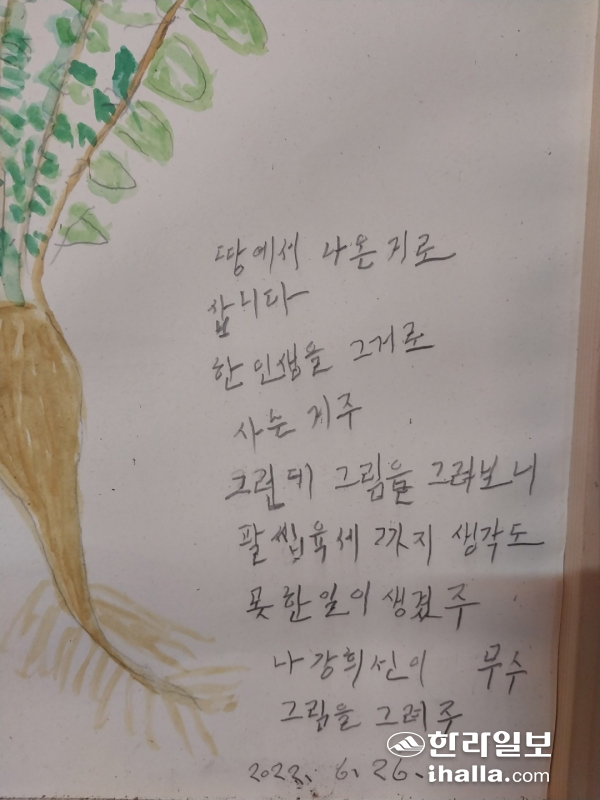 땅에서 나온기로
삽니다
한 인생을 그거로
사는 게주
그런데 그림을 그려보니
팔씹육세 까지 생각도
못한일이 생겼주
나 강희선이 무수
그림을 그려주
2022. 6. 26.
한라일보
ihalla.com